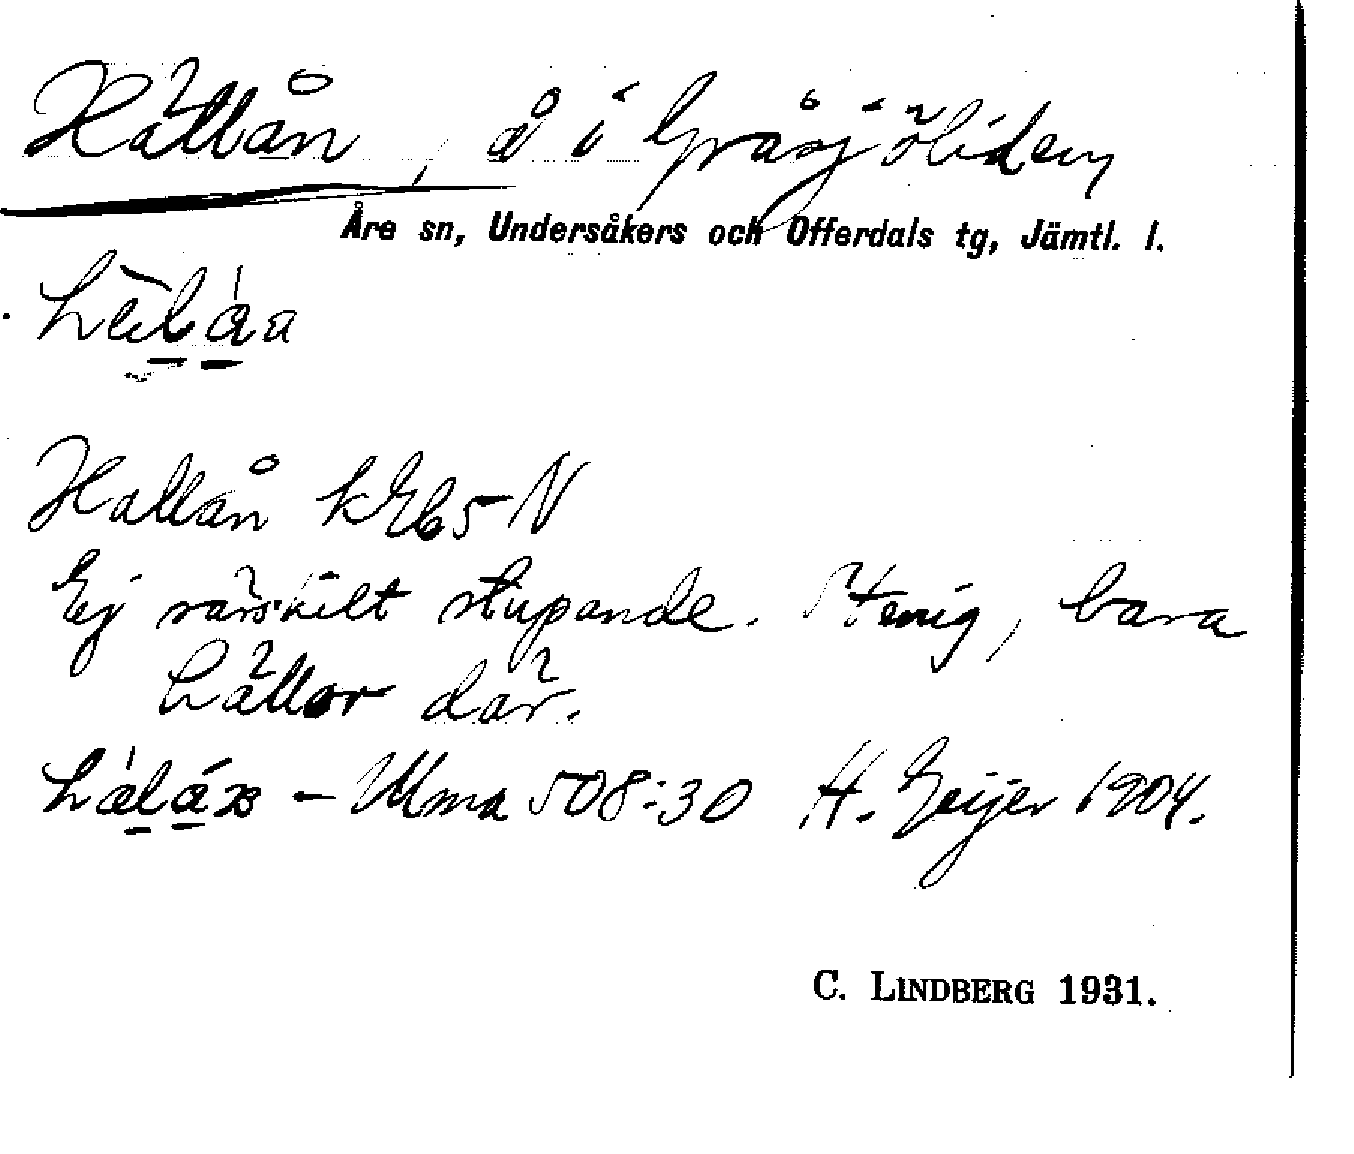 Hällån, å i Gråsjöliden
Åre sn, Undersåkers och Offerdals tg, Jämtl. l.
Hallån kEb5-N
Ej särskilt stupande. Stenig, bara
hällor där.
– Ulma 508:30 H. Geijer 1904.
C. LINDBERG 1931.